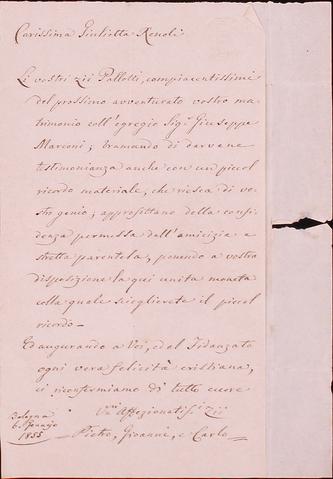 Carissima Giulietta Renoli
Li vostri zii Pallotti, compiacentissimi
del prossimo avventurato vostro ma-
trimonio coll'egregio Sigr Giuseppe
Marconi; bramando di darvene
testimonianza anche con un piccol
ricordo materiale, che riesca di vo-
stro genio; approfittano della confi-
denza permessa dall'amicizia e
stretta parentela, ponendo a vostra
disposizione la qui unita moneta
colla quale sceglierete il piccol
ricordo—
Ed augurando a Voi, ed al Fidanzato
ogni vera felicità cristiana,
ci riconfermiamo di tutto cuore
Vri Affezionatisi Zii
Bologna
6. Gennajo
1855
Pietro, Giovanni, e Carlo